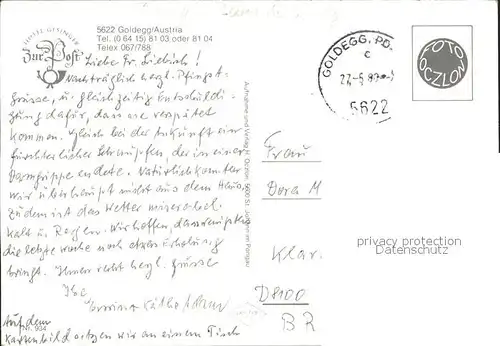 HOTEL GESINGER
Zur Post
5622 Goldegg/Austria
Tel. (0 64 15) 81 03 oder 81 04
Telex 067/788
Liebe Fr. Liebich!
Nachträglich herzl. Pfingst-
grüsse, u. gleichzeitig Entschuldi-
gung dafür, dass sie verspätet
kommen. Gleich bei der Ankunft ein
fürchterlicher Schnupfen, der in einer
Darmgrippe endete. Natürlich konnten
wir überhaupt nicht aus dem Haus,
zudem ist das Wetter miserabel.
Kalt u. Regen. Wir hoffen, dass wenigstens
die letzte Woche noch etwas Erholung
bringt. Ihnen recht herzl. Grüsse
Ihre
Auf dem
Kartenbild sitzen wir an einem Tisch
Nr. 934
Aufnahme und Verlag H. Oczlon, 5600 St. Johann im Pongau
GOLDEGG, PO.
c
5622
FOTO
OCZLON
Frau
Dora M
Klar.
D8100
privacy protection
Datenschutz